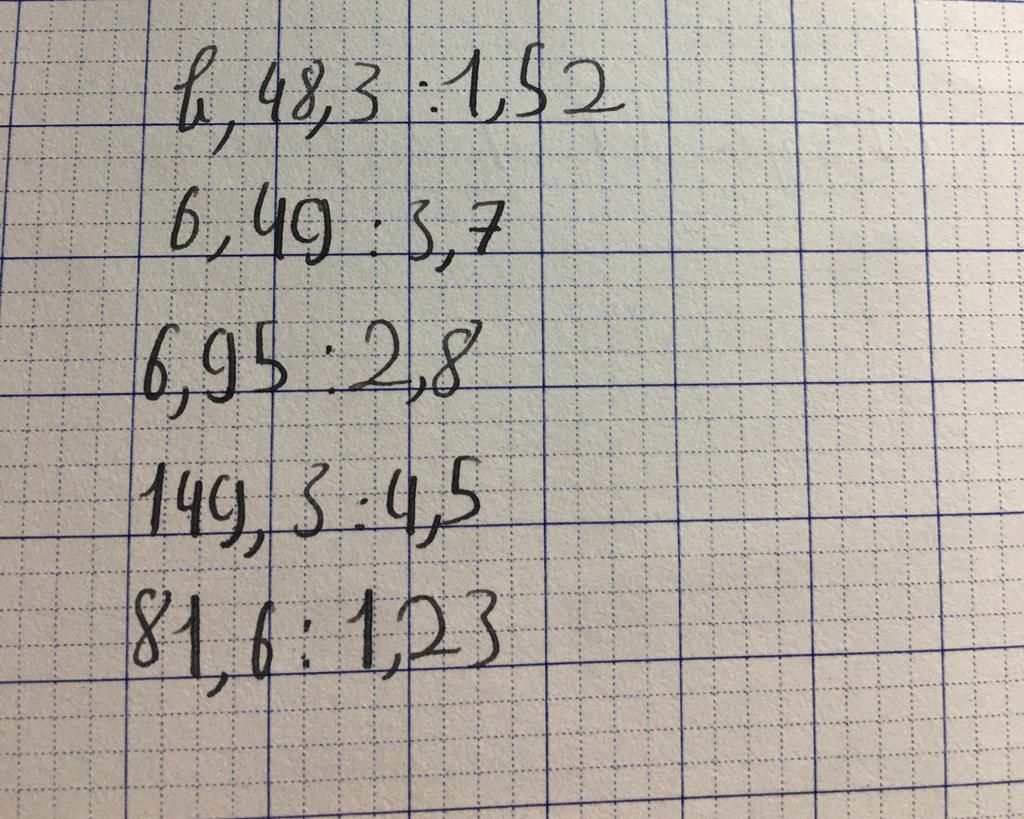 b, 48,3 : 1,52
6,49 : 3,7
6,95 : 2,8
149,3 : 4,5
81,6 : 1,23